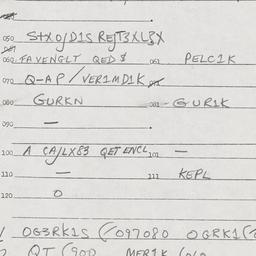 050 S+XO/D1S REJT3XLEX
060 FAVENGLT QED $ 061 PELC1K
070 Q-AP/VER1MD1K
080 GURKN 081 -GUR1K
090 —
100 A CA/LX83 QETENCL 101 —
110 — 111 KEPL
120 O
OG3RK1S (/097080 OGRK1(
QT (900 MER1K